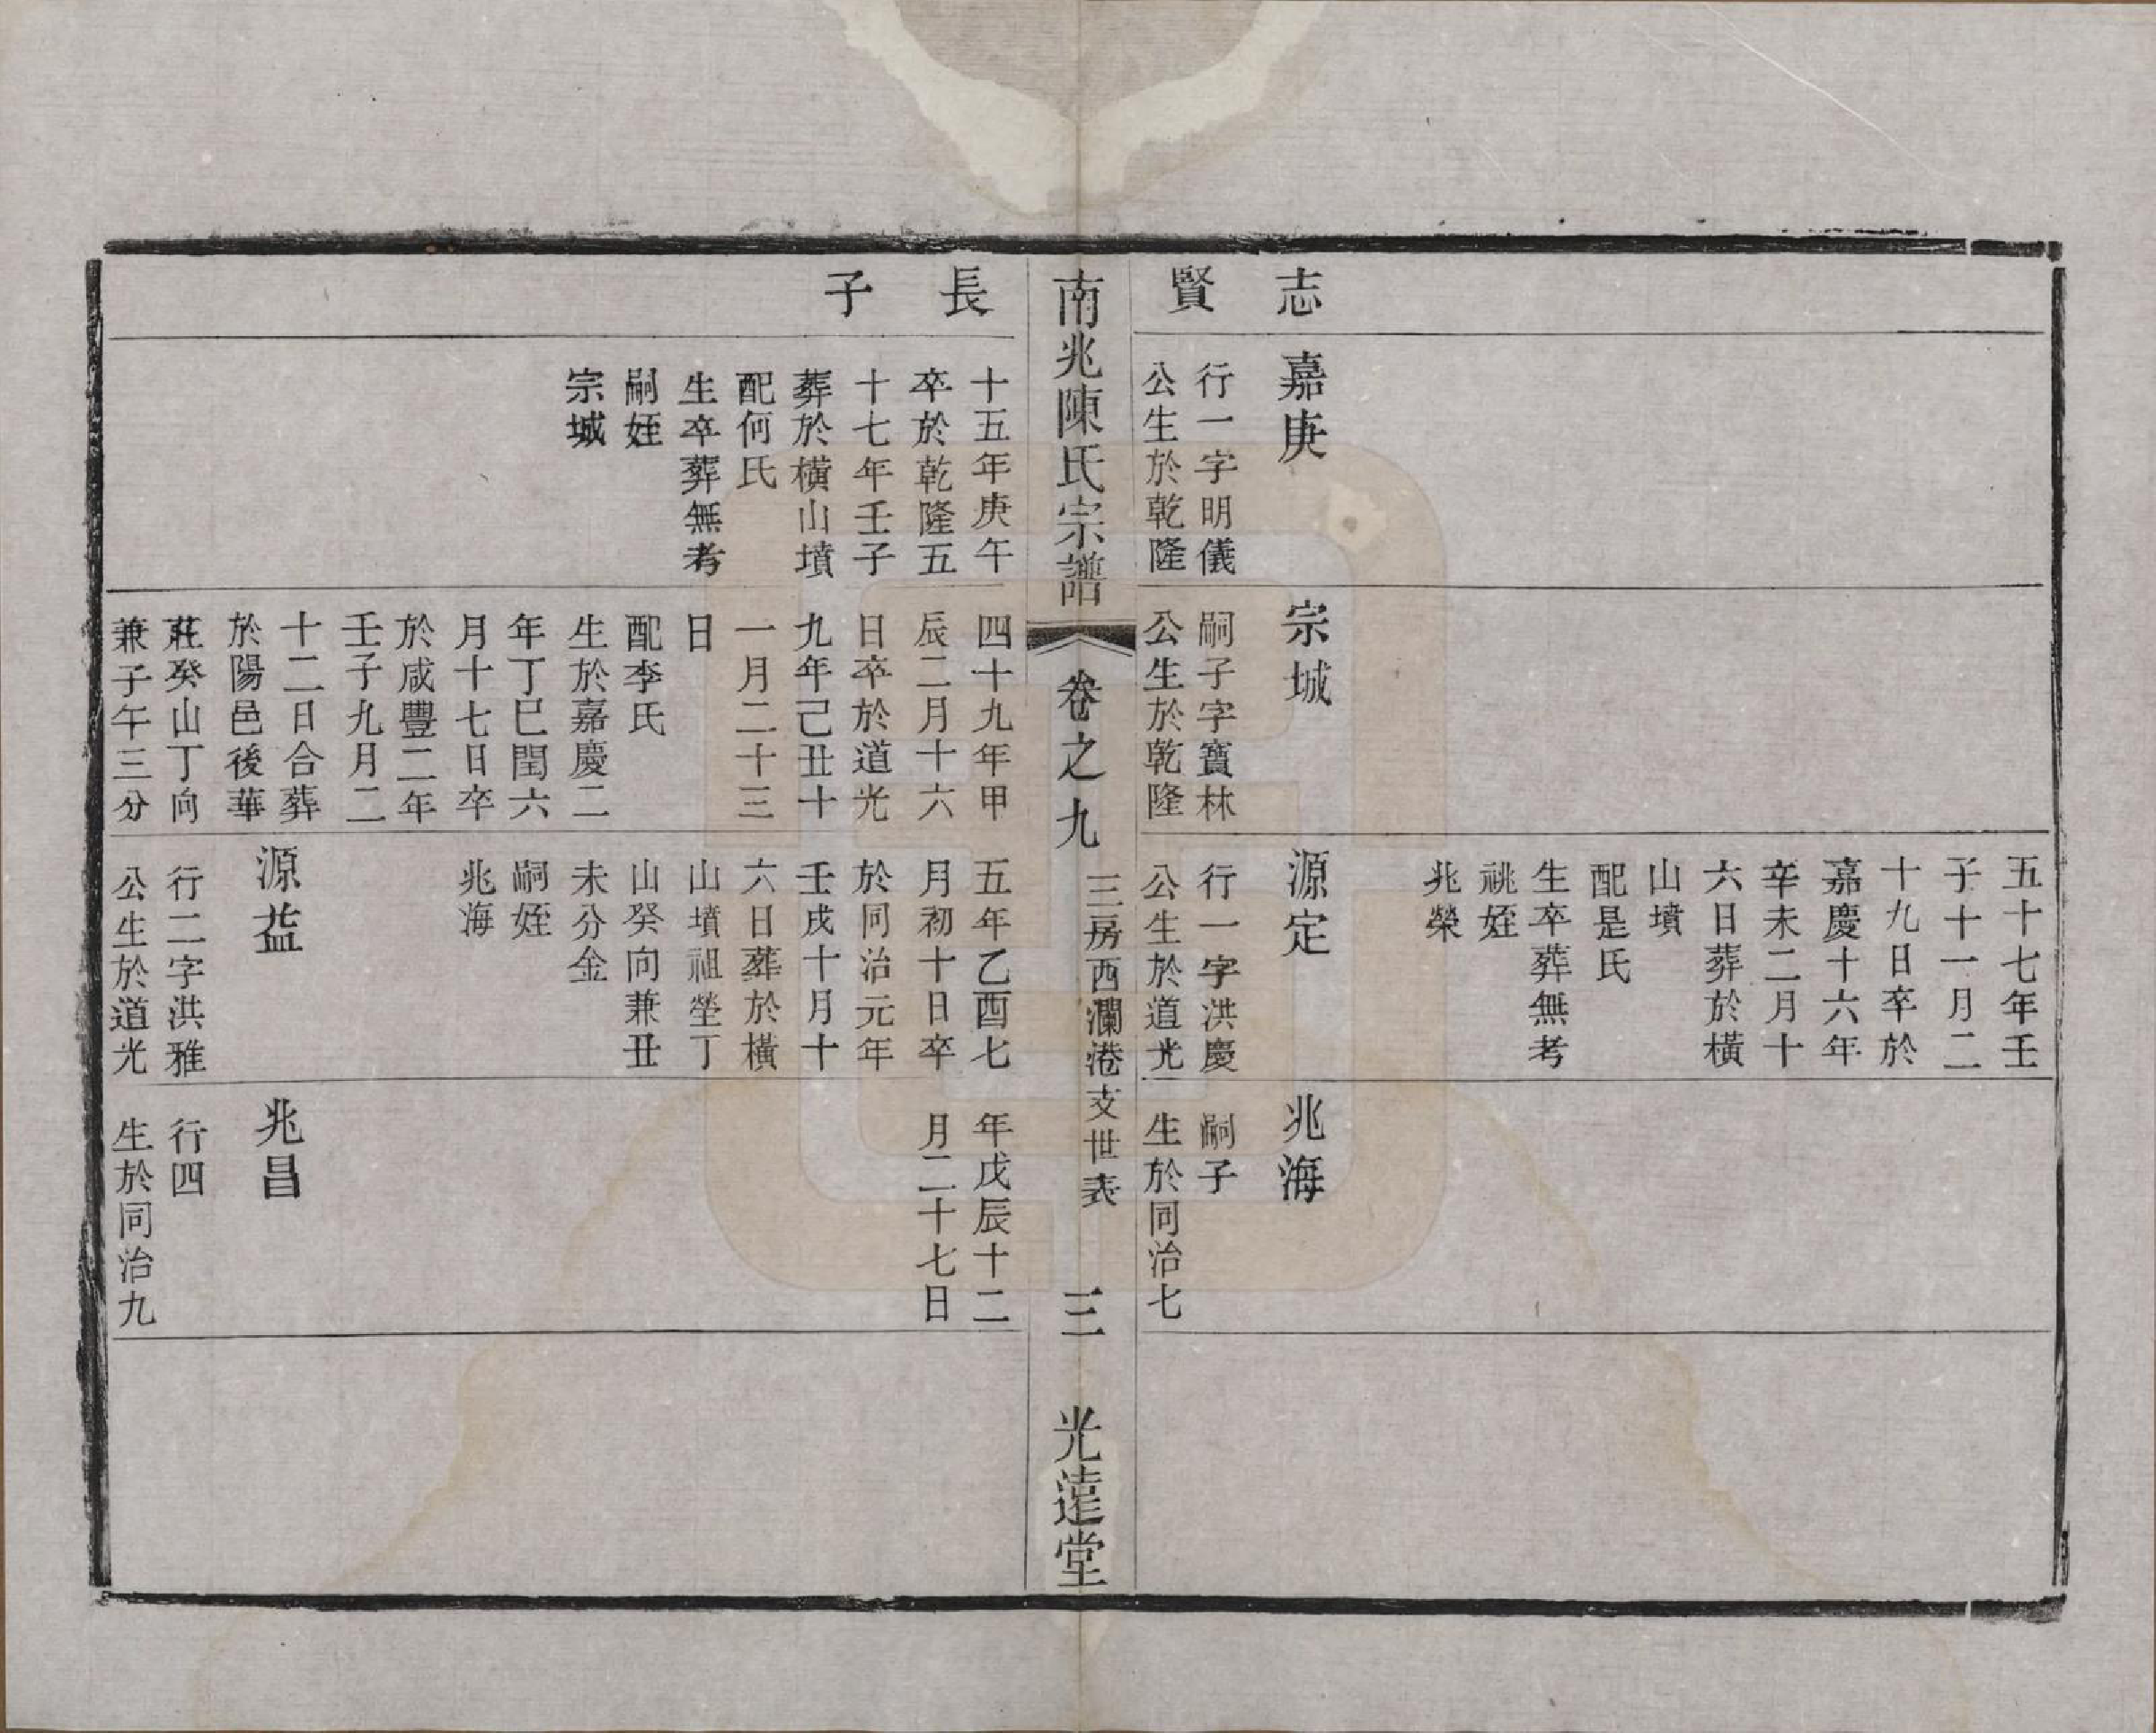 志
賢
嘉庚
行一字明儀
公生於乾隆
宗城
嗣子字寶林
公生於乾隆
五十七年壬
子十一月二
十九日卒於
嘉慶十六年
辛未二月十
六日葬於橫
山墳
配是氏
生卒葬無考
祧姪
兆榮
源定
行一字洪慶
公生於道光
兆海
嗣子
生於同治七
南兆陳氏宗譜
卷之九
三房西瀾港支世表
三
光遠堂
長
子
十五年庚午
卒於乾隆五
十七年壬子
葬於橫山墳
配何氏
生卒葬無考
嗣姪
宗城
四十九年甲
辰二月十六
日卒於道光
九年己丑十
一月二十三
日
配李氏
生於嘉慶二
年丁巳閏六
月十七日卒
於咸豐二年
壬子九月二
十二日合葬
於陽邑後華
莊癸山丁向
兼子午三分
五年乙酉七
月初十日卒
於同治元年
壬戌十月十
六日葬於橫
山墳祖塋丁
山癸向兼丑
未分金
嗣姪
兆海
源益
行二字洪雅
公生於道光
年戊辰十二
月二十七日
兆昌
行四
生於同治九